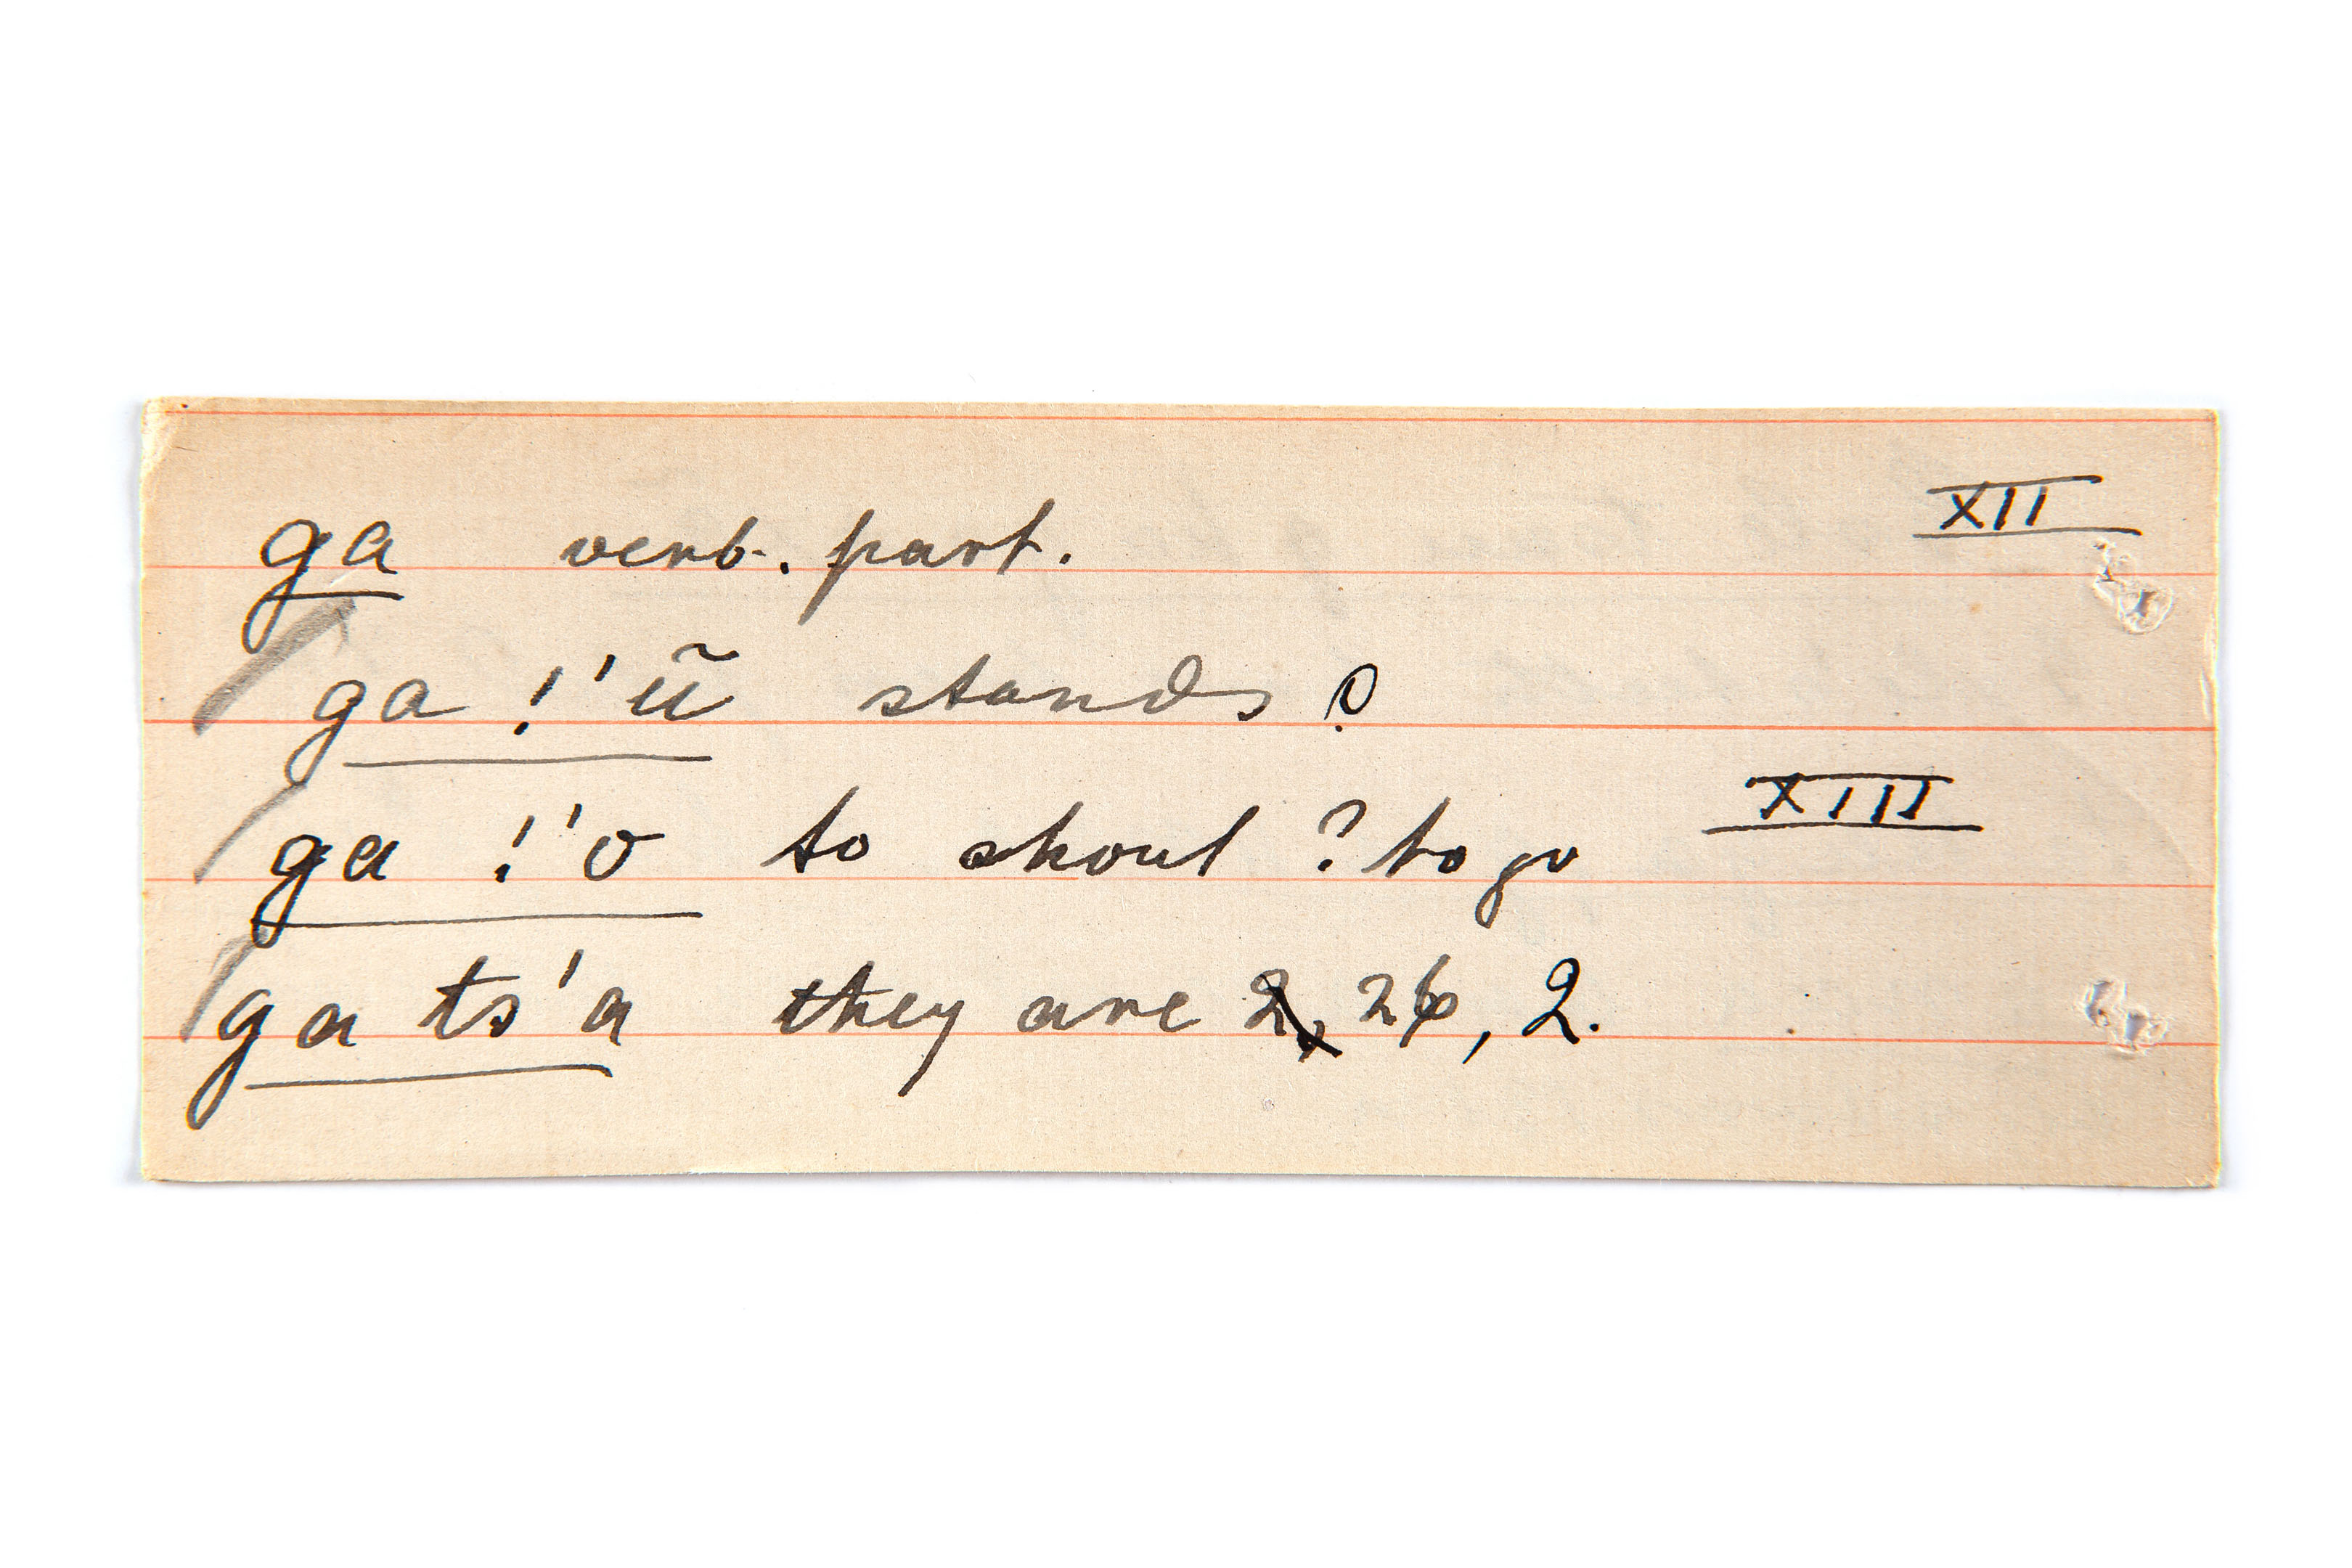 ga verb. part. XII
ga !'ũ stands ?
ga !'o to shout ? to go XIII
ga ts'a they are 2, 26, 2.